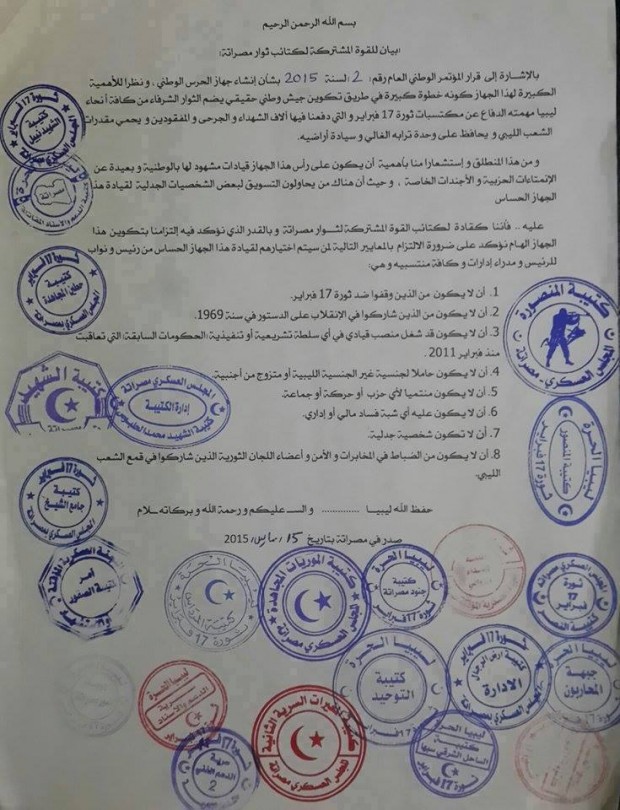 بسم الله الرحمن الرحيم
(بيان للقوة المشتركة لكتائب ثوار مصراتة)
بالإشارة إلى قرار المؤتمر الوطني العام رقم: 2 لسنة 2015 بشأن إنشاء جهاز الحرس الوطني ، و نظرا للأهمية
الكبيرة لهذا الجهاز كونه خطوة كبيرة في طريق تكوين جيش وطني حقيقي يضم الثوار الشرفاء من كافة أنحاء
ليبيا مهمته الدفاع عن مكتسبات ثورة 17 فبراير و التي دفعنا فيها ألاف الشهداء و الجرحى و المفقودين و يحمي مقدرات
الشعب الليبي و يحافظ على وحدة ترابه الغالي و سيادة أراضيه.
و من هذا المنطلق و إستشعارا منا بأهمية أن يكون على رأس هذا الجهاز قيادات مشهود لها بالوطنية و بعيدة عن
الإنتماءات الحزبية و الأجندات الخاصة ، و حيث أن هناك من يحاولون التسويق لبعض الشخصيات الجدلية لقيادة هذا
الجهاز الحساس
عليه .. فأننا كقادة لكتائب القوة المشتركة لثوار مصراتة و بالقدر الذي نؤكد فيه إلتزامنا بتكوين هذا
الجهاز الهام نؤكد على ضرورة الالتزام بالمعايير التالية لمن سيتم اختيارهم لقيادة هذا الجهاز الحساس من رئيس و نواب
للرئيس و مدراء إدارات و كافة منتسبيه و هي:
1. أن لا يكون من الذين وقفوا ضد ثورة 17 فبراير.
2. أن لا يكون من الذين شاركوا في الإنقلاب على الدستور في سنة 1969.
3. أن لا يكون قد شغل منصب قيادي في أي سلطة تشريعية أو تنفيذية (الحكومات السابقة) التي تعاقبت
منذ فبراير 2011.
4. أن لا يكون حاملا لجنسية غير الجنسية الليبية أو متزوج من أجنبية.
5. أن لا يكون منتميا لأي حزب أو حركة أو جماعة.
6. أن لا يكون عليه أي شبة فساد مالي أو إداري.
7. أن لا تكون شخصية جدلية.
8. أن لا يكون من الضباط في المخابرات و الأمن و أعضاء اللجان الثورية الذين شاركوا في قمع الشعب
الليبي.
حفظ الله ليبيا ............... و السـ عليكم و رحمة الله و بركاته ـلام
صدر في مصراتة بتاريخ 15 / مارس / 2015
ثورة 17 فبراير
كتيبة
الشهيد نبيل
مصراتة
ثورة 17 فبراير
كتيبة
حطين المجاهدة
المجلس العسكري بمصراتة
كتيبة المنصورة
المجلس العسكري - مصراتة
كتيبة الشهيد
المجلس العسكري مصراتة
إدارة الكتيبة
كتيبة الشهيد محمد
ليبيا الحرة
كتيبة
المنصور
ثورة 17 فبراير
ثورة 17 فبراير
كتيبة
جامع الشيخ
المجلس العسكري بمصراتة
أمر
كتيبة الصقور
ليبيا الحرة
ثورة 17 فبراير
كتيبة الموريات المجاهدة
المجلس العسكري مصراتة
ليبيا الحرة
كتيبة
جنود مصراتة
ثورة 17 فبراير
المجلس العسكري مصراتة
ثورة
17
فبراير
ليبيا الحرة
كتيبة
التوحيد
ثورة 17 فبراير
كتيبة أرض الرجال
الادارة
المجلس العسكري بمصراتة
ليبيا الحرة
جبهة
المحاربون
ليبيا الحرة
سرية
كتيبة المغيرات السرية الثانية
المجلس العسكري مصراتة
ليبيا الحرة
كتيبة
الساحل الشرقي
ثورة 17 فبراير
سرية
الدعم الخلفي
2